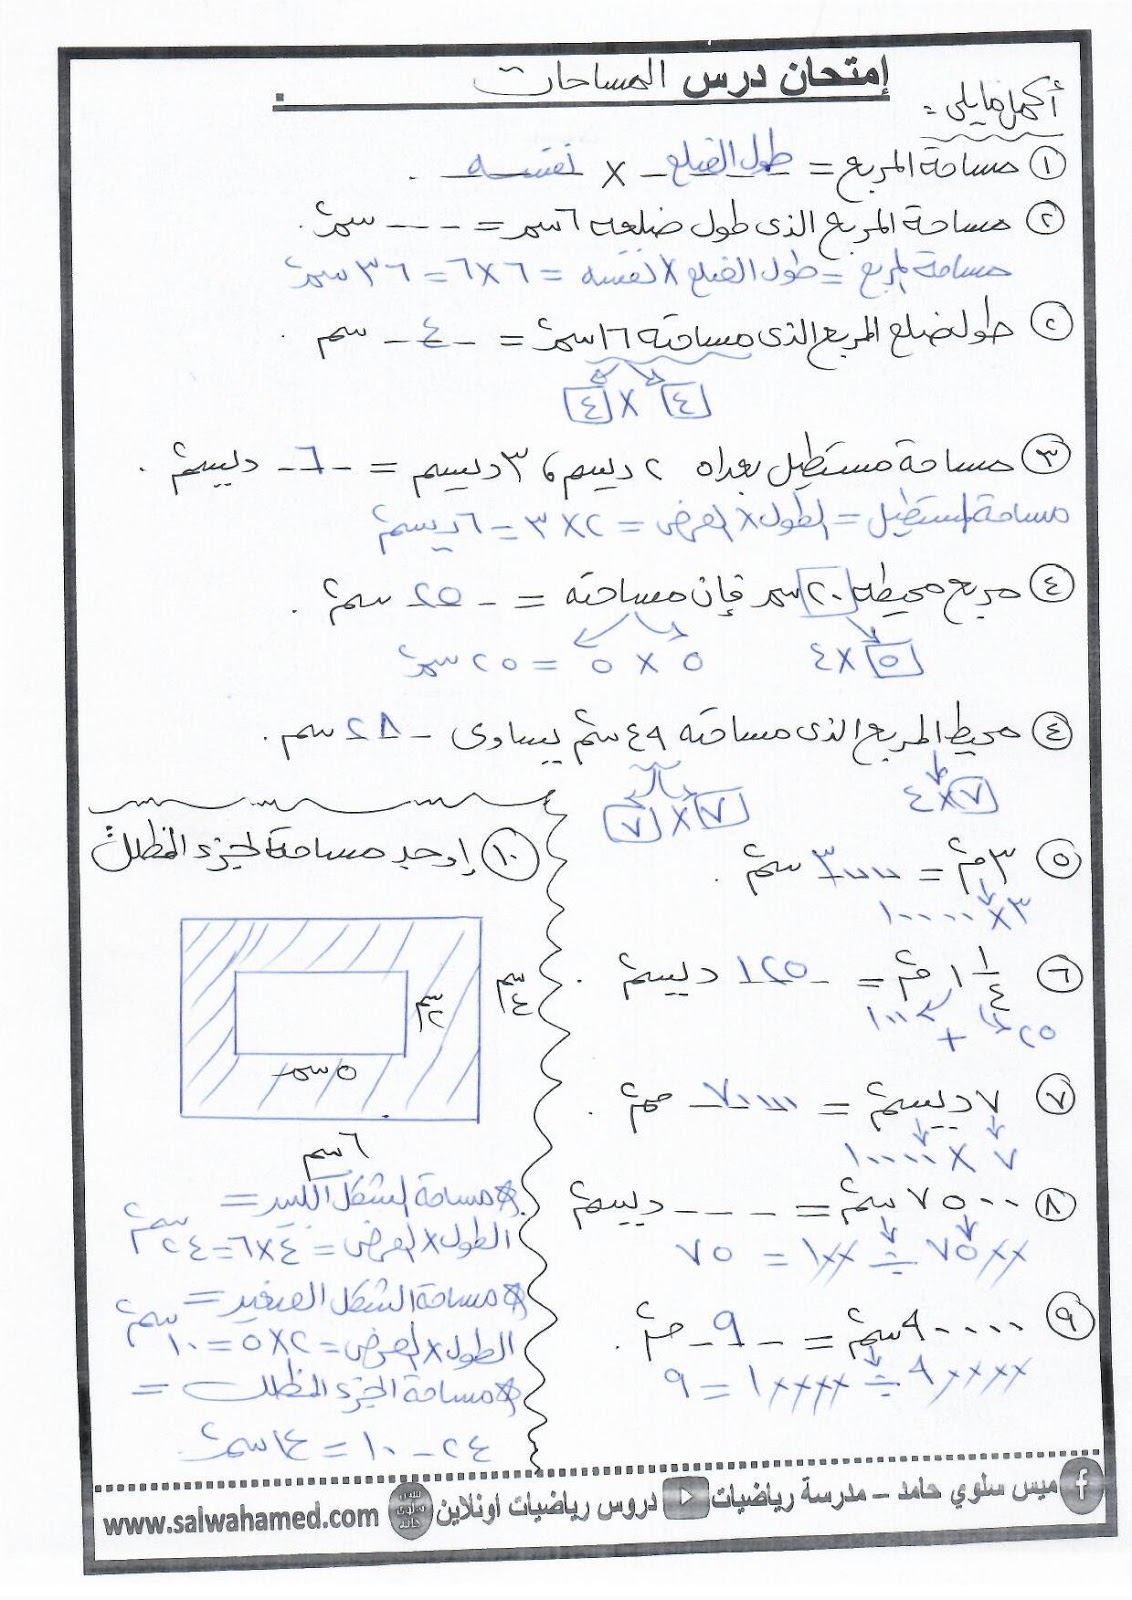 إمتحان درس المساحات
أكمل ما يلى :
١ مساحة المربع = طول الضلع × نفسه .
٢ مساحة المربع الذى طول ضلعه ٦ سم = --- سم٢.
مساحة المربع = طول الضلع × نفسه = ٦×٦ = ٣٦ سم٢
٢ طول ضلع المربع الذى مساحته ١٦ سم٢ = ٤ سم .
٤ × ٤
٣ مساحة مستطيل بعداه ٢ ديسم ، ٣ ديسم = ٦ ديسم٢ .
مساحة المستطيل = الطول × العرض = ٢×٣ = ٦ ديسم٢
٤ مربع محيطه ٢٠ سم فإن مساحته = ٢٥ سم٢ .
٥ × ٤
٥ × ٥ = ٢٥ سم٢
٤ محيط المربع الذى مساحته ٤٩ سم٢ يساوى ٢٨ سم .
٧ × ٤
٧ × ٧
٥ ٣ م٢ = ٣٠٠٠٠ سم٢ .
٣ × ١٠٠٠٠
٦ ١ ١/٤ م٢ = ١٢٥ ديسم٢ .
٢٥ + ١٠٠
٧ ٧ ديسم٢ = ٧٠٠٠٠ مم٢ .
٧ × ١٠٠٠٠
٨ ٧٥٠٠ سم٢ = --- ديسم٢
٧٥٠٠ ÷ ١٠٠ = ٧٥
٩ ٩٠٠٠٠ سم٢ = ٩ م٢ .
٩٠٠٠٠ ÷ ١٠٠٠٠ = ٩
١٠ إوجد مساحة الجزء المظلل
٤ سم
٢ سم
٥ سم
٦ سم
* مساحة الشكل الكبير =
الطول × العرض = ٤×٦ = ٢٤ سم٢
* مساحة الشكل الصغير =
الطول × العرض = ٢×٥ = ١٠ سم٢
* مساحة الجزء المظلل =
٢٤ - ١٠ = ١٤ سم٢
ميس سلوي حامد – مدرسة رياضيات دروس رياضيات اونلاين www.salwahamed.com